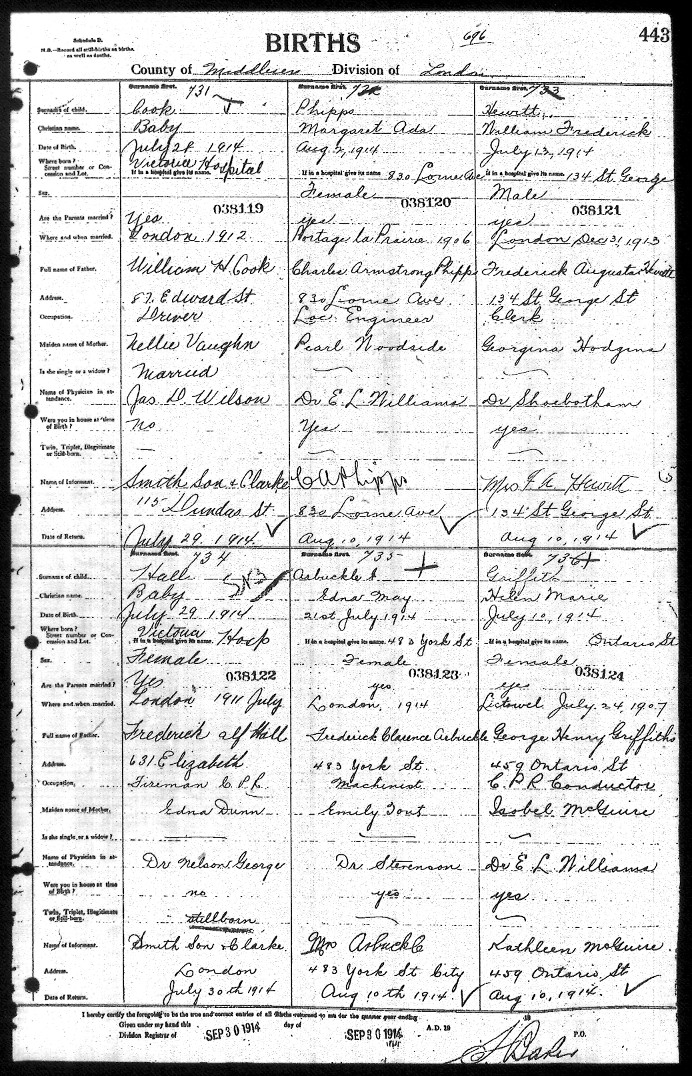 Schedule D.
N.B.—Record all still-births as births.
as well as deaths.
BIRTHS
696
443
County of Middlesex Division of London
Surname first. 731
Surname first. 732
Surname first. 733
Surname of child. Cook Phipps Hewitt
Christian name. Baby Margaret Ada William Frederick
Date of Birth. July 28 1914 Aug 2, 1914 July 13, 1914
Where born? Victoria Hospital
Street number or Con- If in a hospital give its name. If in a hospital give its name. 830 Lorne Ave If in a hospital give its name. 134 St. George
cession and Lot.
Sex. Female Male
038119 038120 038121
Are the Parents married? Yes yes yes
Where and when married. London 1912 Portage la Prairie 1906 London Dec 31, 1913
Full name of Father. William H Cook Charles Armstrong Phipps Frederick Augustus Hewitt
Address. 87 Edward St 830 Lorne Ave 134 St George St
Occupation. Driver Loc. Engineer Clerk
Maiden name of Mother. Nellie Vaughn Pearl Woodside Georgina Hodgins
Is she single or a widow? Married
Name of Physician in at- Jas D. Wilson Dr E. L Williams Dr Shoebotham
tendance.
Were you in house at time no Yes yes
of Birth?
Twin, Triplet, Illegitimate —
or Still-born.
Name of Informant. Smith Son & Clarke C A Phipps Mrs F A Hewitt
Address. 115 Dundas St. 830 Lorne Ave 134 St George St.
Date of Return. July 29. 1914. Aug 10, 1914 Aug 10, 1914
Surname first. 734
Surname first. 735
Surname first. 736
Surname of child. Hall Arbuckle Griffith
Christian name. Baby Edna May Helen Marie
Date of Birth. July 29 1914 21st July 1914 July 10, 1914
Where born? Victoria Hosp
Street number or Con- If in a hospital give its name. If in a hospital give its name. 483 York St If in a hospital give its name. Ontario St
cession and Lot.
Sex. Female Female Female
038122 038123 038124
Are the Parents married? Yes yes yes
Where and when married. London 1911 July London, 1914 Listowel July 24, 1907
Full name of Father. Frederick Alf Hall Frederick Clarence Arbuckle George Henry Griffiths
Address. 631 Elizabeth 483 York St. 459 Ontario St
Occupation. Fireman C.P.R. Machinist C.P.R Conductor
Maiden name of Mother. Edna Dunn Emily Isobel McGuire
Is she single, or a widow?
Name of Physician in at- Dr Nelson George Dr. Stevenson Dr E L Williams
tendance.
Were you in house at time no yes yes.
of Birth?
Twin, Triplet, Illegitimate stillborn
or Still-born.
Name of Informant. Smith Son & Clarke. Arbuckle Kathleen McGuire
Address. London 483 York St City 459 Ontario St
Date of Return. July 30th 1914 Aug 10th 1914. Aug 10, 1914.
I hereby certify the foregoing to be the true and correct entries of all Births returned to me for the quarter ending 19
Given under my hand this SEP 30 1914 day of SEP 30 1914 A.D. 19
Division Registrar of P.O.